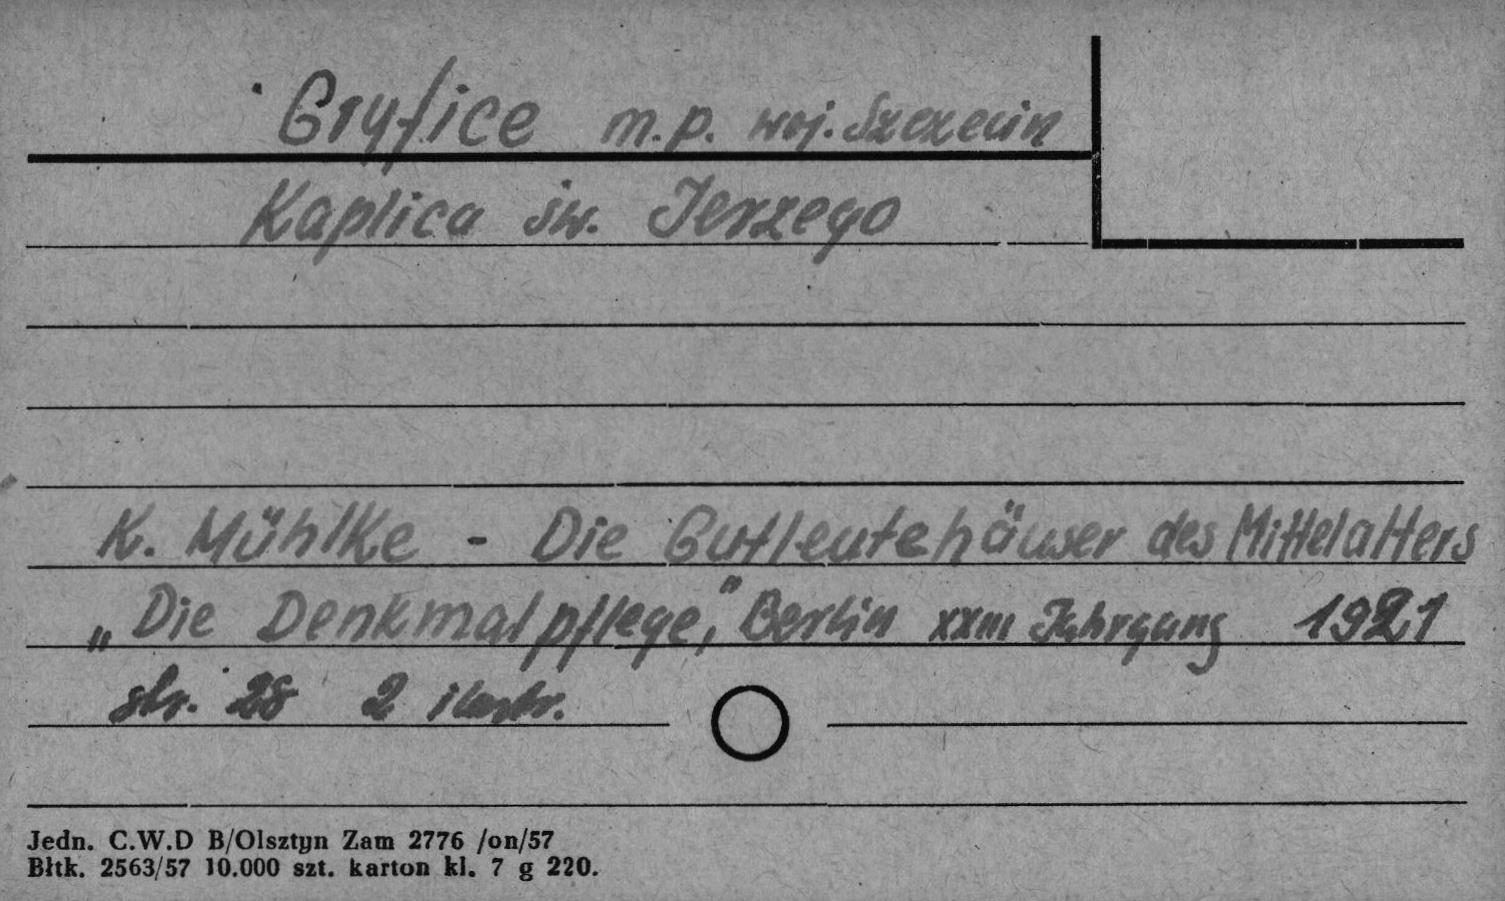 Gryfice m.p. woj. Szczecin
Kaplica św. Jerzego
K. Mühlke - Die Gutleutehäuser des Mittelalters
„Die Denkmalpflege," Berlin XXIII Jahrgang 1921
str. 28 2 ilustr.
Jedn. C.W.D B/Olsztyn Zam 2776 /on/57
Błtk. 2563/57 10.000 szt. karton kl. 7 g 220.